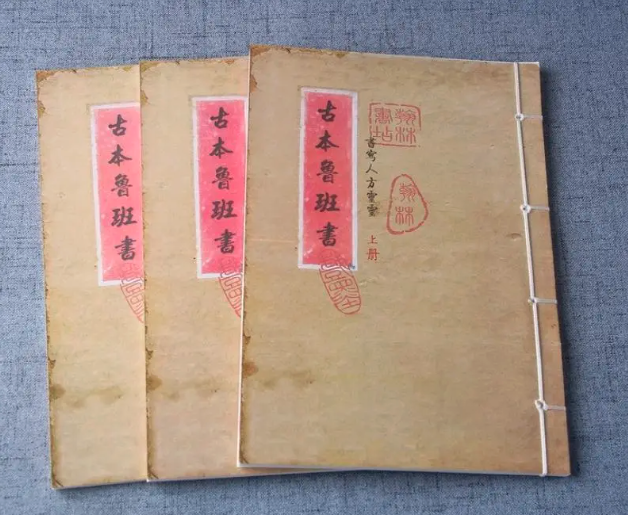 古本魯班書
古本魯班書
古本魯班書
書寫人方靈靈
上册